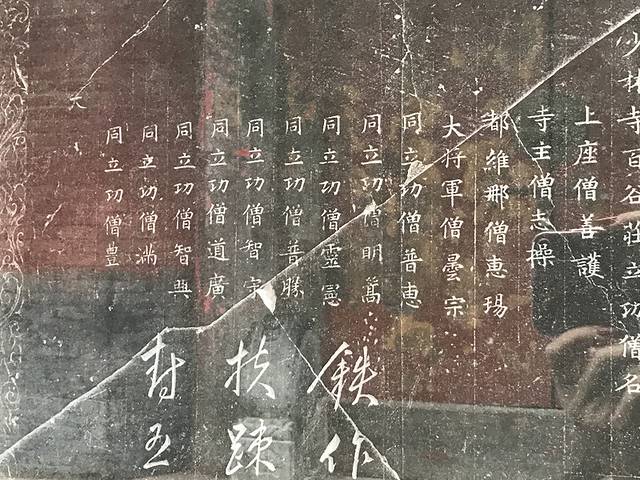 少林寺百谷莊立功僧名
上座僧善護
寺主僧志操
都維那僧惠玚
大將軍僧曇宗
同立功僧普惠
同立功僧明嵩
同立功僧靈憲
同立功僧普勝
同立功僧智守
同立功僧道廣
同立功僧智興
同立功僧滿
同立功僧豊
大
鉄作
扶疎
封五